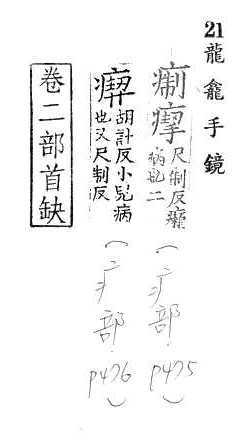 21 龍龕手鏡
痸 尺制反
病也二
(疒部 p475)
胡計反小兒病
也又尺制反
(疒部 p476)
卷二部首缺